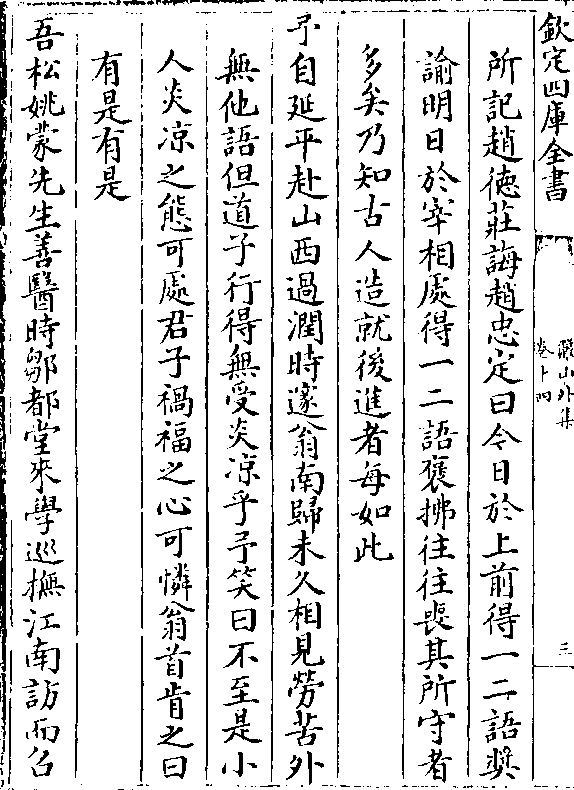 欽定四庫全書
儼山外集
卷十四
三
所記趙德莊誨趙忠定曰今日於上前得一二語奬
諭明日於宰相處得一二語褒拂往往喪其所守者
多矣乃知古人造就後進者每如此
予自延平赴山西過潤時邃翁南歸未久相見勞苦外
無他語但道子行得無受炎凉乎予笑曰不至是小
人炎凉之態可處君子禍福之心可憐翁首肯之曰
有是有是
吾松姚蒙先生善醫時鄒都堂來學巡撫江南訪而召